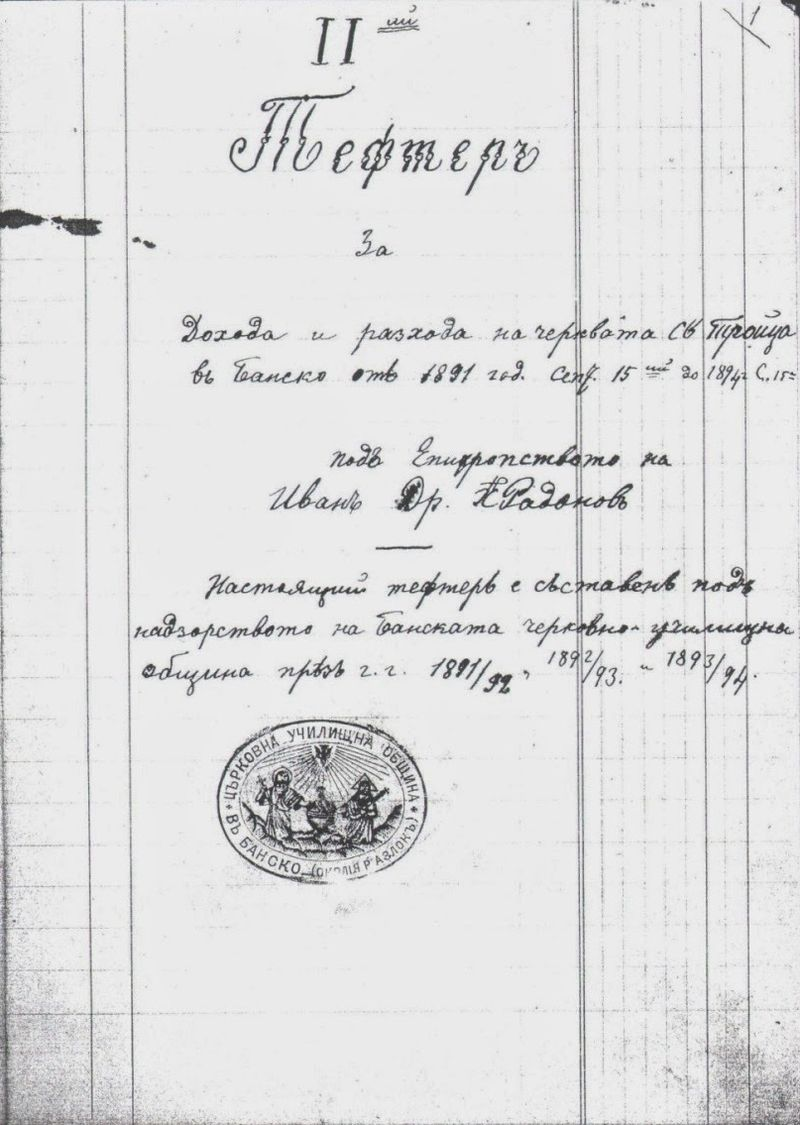 1
II ий
Тефтеръ
За
Дохода и разхода на черквата Св Тройца
въ Банско отъ 1891 год. Септ. 15 ий до 1894 г. С. 15
подъ Епитропството на
Иванъ Др. Радоновъ
Настоящий тефтеръ е съставенъ подъ
надзорството на Банската черковно-училищна
община прѣзъ г. г. 1891/92, 1892/93. и 1893/94.
* ЦЪРКОВНА УЧИЛИЩНА ОБЩИНА *
ВЪ БАНСКО (ОКОЛІЯ РАЗЛОКЪ)